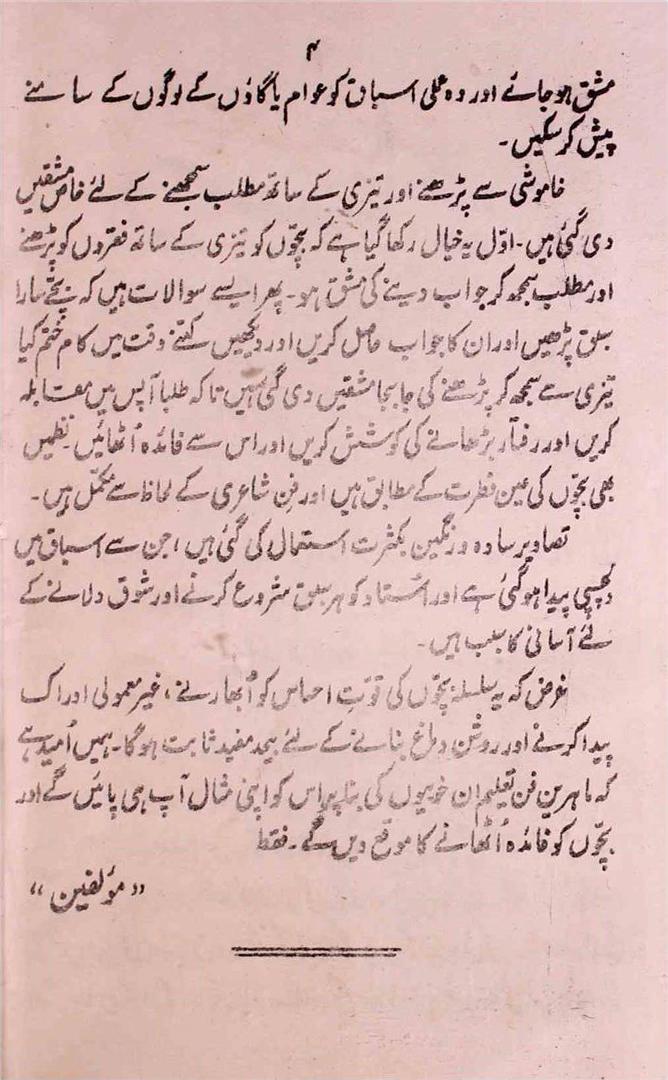 ۴
مشق ہو جائے اور وہ عملی اسباق کو عوام یا گاؤں کے لوگوں کے سامنے
پیش کر سکیں۔
خاموشی سے پڑھنے اور تیزی کے ساتھ مطلب سمجھنے کے لئے خاص مشقیں
دی گئی ہیں۔ اوّل یہ خیال رکھا گیا ہے کہ بچّوں کو تیزی کے ساتھ فقروں کو پڑھنے
اور مطلب سمجھ کر جواب دینے کی مشق ہو۔ پھر ایسے سوالات ہیں کہ بچّے سارا
سبق پڑھیں اور ان کا جواب حاصل کریں اور دیکھیں کتنے وقت میں کام ختم کیا
تیزی سے سمجھ کر پڑھنے کی جابجا مشقیں دی گئی ہیں تاکہ طلبا آپس میں مقابلہ
کریں اور رفتار بڑھانے کی کوشش کریں اور اس سے فائدہ اُٹھائیں۔ نظمیں
بھی بچّوں کی عین فطرت کے مطابق ہیں اور فنِ شاعری کے لحاظ سے مکمّل ہیں۔
تصاویر سادہ و رنگین بکثرت استعمال کی گئی ہیں، جن سے اسباق میں
دلچسپی پیدا ہو گئی ہے اور اُستاد کو ہر سبق شروع کرنے اور شوق دلانے کے
لئے آسانی کا سبب ہیں۔
غرض کہ یہ سلسلہ بچّوں کی قوّتِ احساس کو اُبھارنے، غیر معمولی ادراک
پیدا کرنے اور روشن دماغ بنانے کے لئے بیحد مفید ثابت ہوگا۔ ہمیں اُمید ہے
کہ ماہرینِ فن تعلیم ان خوبیوں کی بنا پر اس کو اپنی مثال آپ ہی پائیں گے اور
بچّوں کو فائدہ اُٹھانے کا موقع دیں گے۔ فقط
"مؤلفین"